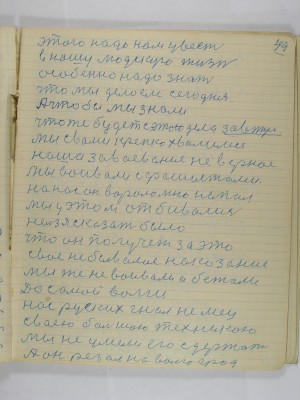 49
этого надо нам цвест
в нашу модскую жизн
особенно надо знат
что мы делаем сегодня
А чтобы мы знали
что те будет с этого дела завтра
мы свами крепко хвалимся
наша завоевание не верное
мы воивали с фашистами
на нас он вороломно напал
мы этом отбивалис
нелзя сказат было
что он получет за это
свое небывалое нокозание
мы же не воивали а бежали
до самой волги
нас руских гнал немец
сваею болшою техникою
мы не умели его сдержат
А он резал на волгоград